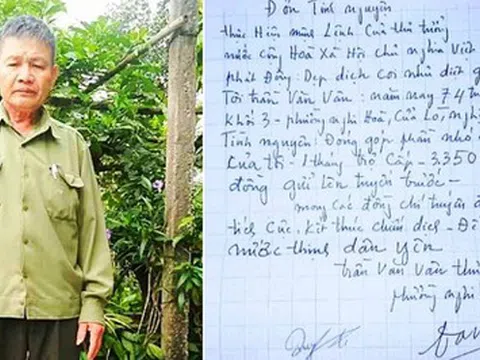 Đơn Tình nguyện
thực Hiện mệnh Lệnh Của thủ tướng
nước cộng Hoà Xã Hội chủ nghĩa Việt
phát Động: Dẹp dịch coi như diệt g
Tôi trần Văn Vân: năm nay 74 t
Khối 3 - phường nghi Hoà, Cửa Lò, ngh
Tình nguyện: Đóng góp phần nhỏ
Của tôi - 1 tháng trợ Cấp - 3350
đồng gửi lên tuyến trước -
mong các đồng chí tuyến
tích Cực. Kết thúc chiến dịch - Để
nước thịnh dân yên
trần Văn Vân
phường nghi